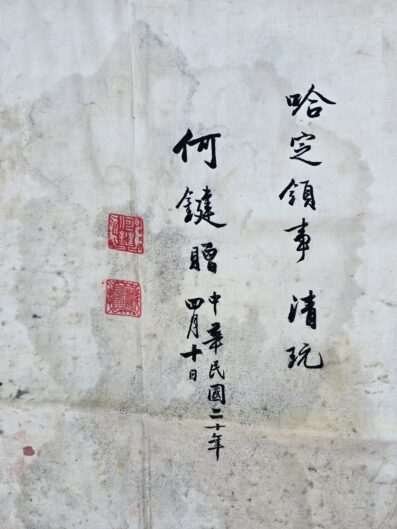 哈定領事 清玩
何鍵贈 中華民國二十年
四月十日